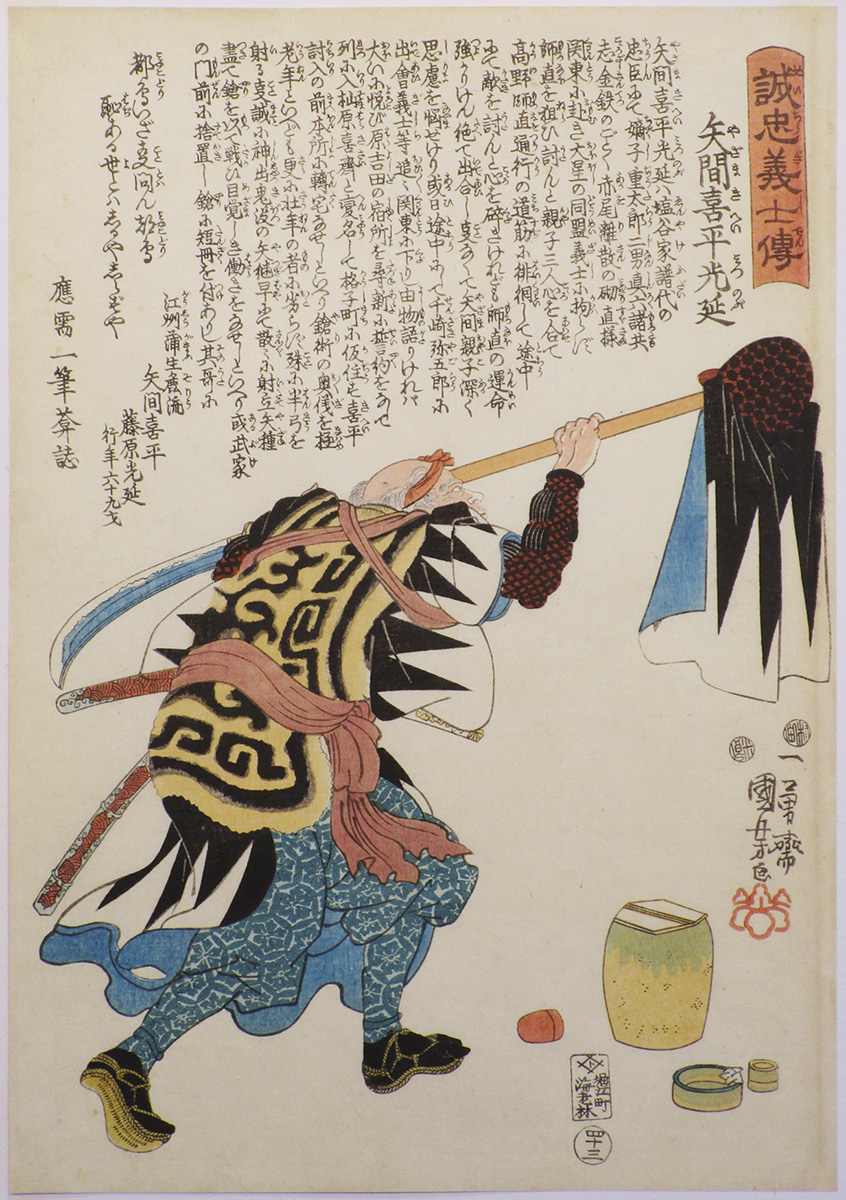 誠忠義士傳
せいちうぎしでん
矢間喜平光延
やざまきへいみつのぶ
矢間喜平光延ハ塩谷家譜代の
忠臣にて嫡子重太郎二男直六諸共
志金鉄のごとく赤尾離散の砌直様
関東に赴き大星の同盟義士に拘らず
師直を狙ひ討んと親子三人心を合て
高野師直通行の道筋に徘徊して途中
にて敵を討んと心を砕きけれども師直の運命
強りけん絶て出合し事なくて矢間親子深く
思慮を悩せけり或日途中にて千崎弥五郎に
出會義士等追々関東に下りし由物語りければ
大いに悦び原吉田の宿所を尋新に誓約をなして
列に入杣原喜齊と変名して格子町に仮住す喜平
討入の前本所に轉宅なせしといへり鎗術の奥儀を極
老年といへども更に壮年の者に劣らず殊に半弓を
射る事誠に神出鬼没の矢継早にて散々に射立矢種
盡て鎗を以て戦ひ目覚しき働きをなせしといへり或武家
の門前に捨置し鎗に短冊を付ありし其哥に
都鳥いざ事問ん都鳥
恥ある世とハしるやしらずや
江州蒲生鹿流
矢間喜平
藤原光延
行年六十九才
應需一筆菴誌
村田
一勇齋
國芳画
堀江町
海老林
四十三